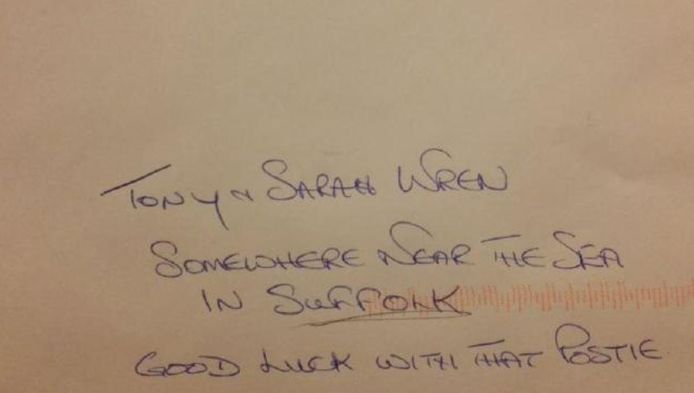 TONY & SARAH WREN
SOMEWHERE NEAR THE SEA
IN SUFFOLK
GOOD LUCK WITH THAT POSTIE